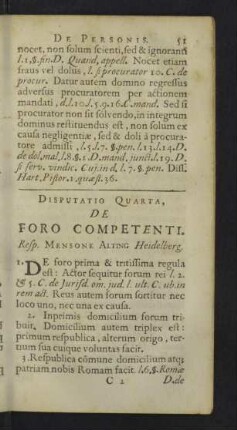 DE PERSONIS. 51
nocet, non solum scienti, sed & ignoranti
l. 1. §. fin. D. Quand. appell. Nocet etiam
fraus vel dolus, l. si procurator 10. C. de
procur. Datur autem domino regressus
adversus procuratorem per actionem
mandati, d. l. 10. l. 5. 9. 16. C. mand. Sed si
procurator non sit solvendo, in integrum
dominus restituendus est, non solum ex
causa negligentiæ, sed & doli à procura-
tore admissi, l. 5. l. 7. §. pen. l. 13. l. 14. D.
de dol. mal. l. 8. §. 1. D. mand. junct. l. 19. D.
si serv. vindic. Cuj. in d. l. 7. §. pen. Diss.
Hart. Pistor. 1. quæst. 36.
DISPUTATIO QUARTA,
DE
FORO COMPETENTI.
Resp. MENSONE ALTING Heidelberg.
1. DE foro prima & tritissima regula
est: Actor sequitur forum rei l. 2.
& 5. C. de Jurisd. om. jud. l. ult. C. ub. in
rem act. Reus autem forum sortitur nec
loco uno, nec una ex causa.
2. Inprimis domicilium forum tri-
buit. Domicilium autem triplex est:
primum respublica, alterum origo, ter-
tium sua cuique voluntas facit.
3. Respublica cōmune domicilium atq;
patriam nobis Romam facit. l. 6. §. Romæ
C 2 D. de